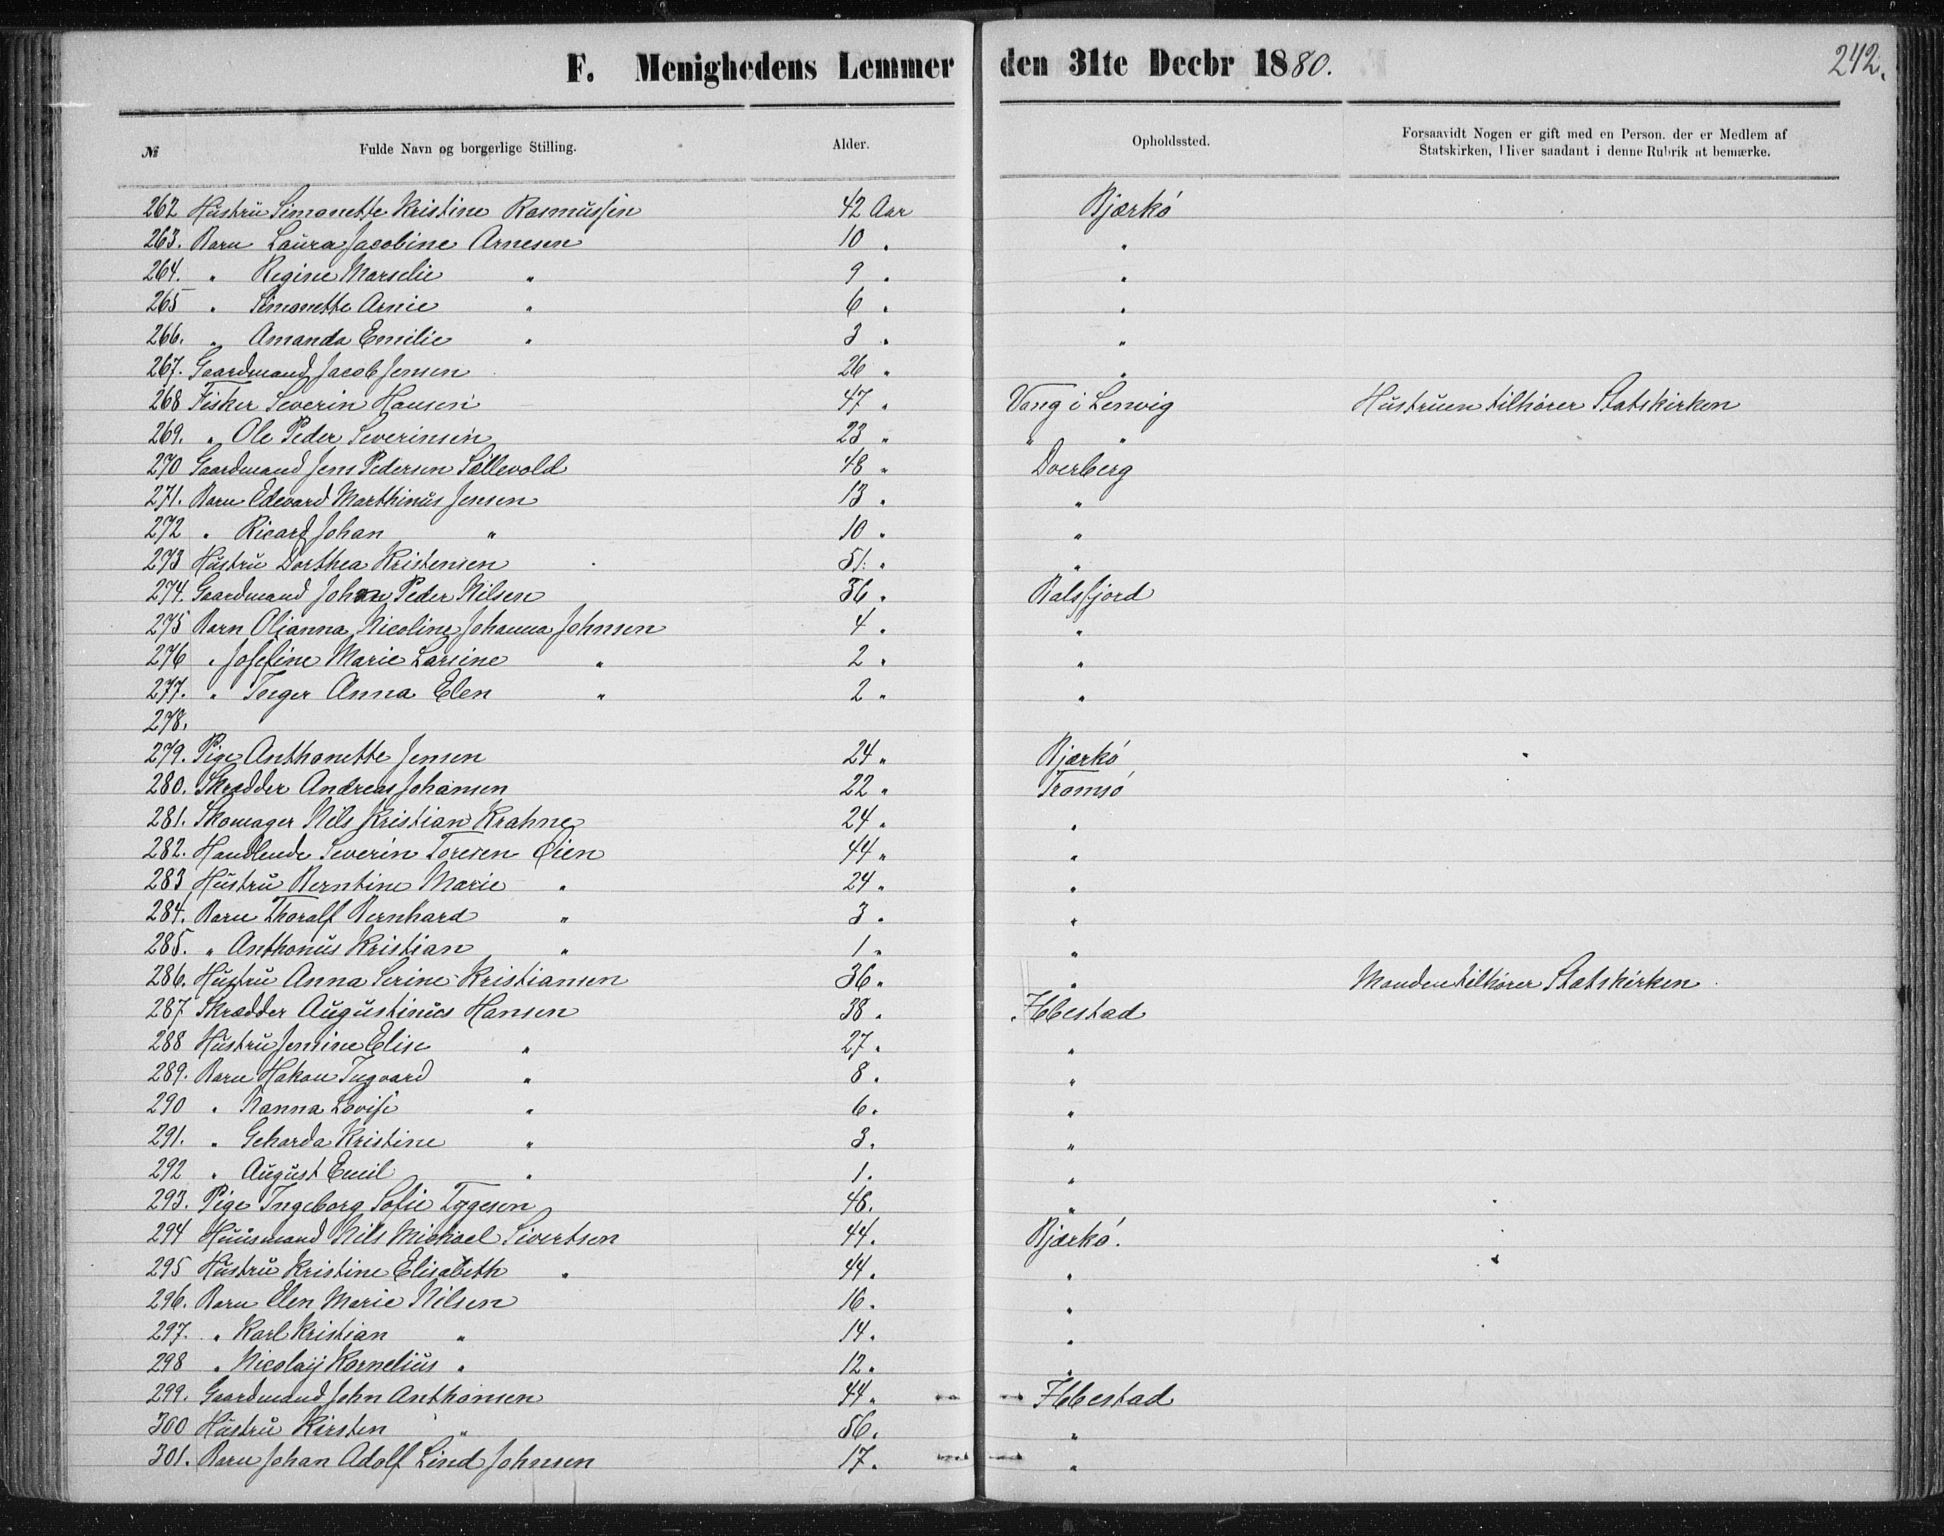 F. Menighedens Lemmer den 31te Decbr 1880. 242.
№ Fulde Navn og borgerlige Stilling. Alder. Opholdssted. Forsaavidt Nogen er gift med en Person, der er Medlem af
Statskirken, bliver saadant i denne Rubrik at bemærke.
262 Hustru Simonette Kristine Rasmussen 42 Aar Bjærkö
263. Barn Laura Jacobine Arnesen 10 " "
264. " Regine Marselie " 9 " "
265 " Simonette Arnie " 6 " "
266. " Amanda Emilie " 3 " "
267. Gaardmand Jacob Jensen 26 " "
268 Fisker Severin Hansen 47 " Vang i Lenvig Hustruen tilhører Statskirken
269. " Ole Peder Severinsen 23 " " "
270 Gaardmand Jens Pedersen Sallevold 48 " Dverberg
271. Barn Edevard Marthinus Jensen 13 " "
272 " Ricard Johan " 10 " "
273 Hustru Dorthea Kristensen 51. " "
274. Gaardmand Johan Peder Nilsen 36 " Balsfjord
275 Barn Olianna Nicoline Johanna Johnsen 4 " "
276 " Josefine Marie Larsine " 2 " "
277. " Inger Anna Elen " 2 " "
278.
279. Pige Anthonette Jensen 24 " Bjærkö
280. Skrædder Andreas Johansen 22 " Tromsö
281. Skomager Nils Kristian Krahne 24 " "
282. Handlende Severin Toresen Øien 44 " "
283 Hustru Berntine Marie " 24 " "
284. Barn Thoralf Bernhard " 3 " "
285. " Anthonus Kristian " 1 " "
286. Hustru Anna Serine Kristiansen 36 " " Manden tilhører Statskirken
287 Skrædder Augustinus Hansen 38 " Ibbestad
288 Hustru Jensine Elise " 27 " "
289. Barn Hakon Ingvard " 8 " "
290 " Nanna Lovise " 6 " "
291. " Geharda Kristine " 3 " "
292 " August Emil " 1 " "
293. Pige Ingeborg Sofie Tygesen 48. "
294 Huusmand Nils Michael Sivertsen 44. Bjærkö.
295 Hustru Kristine Elisabeth " 44. "
296. Barn Elen Marie Nilsen 16. "
297. " Karl Kristian " 14. "
298 " Nicolaij Kornelius " 12. "
299. Gaardmand John Anthonsen 44. Ibbestad
300 Hustru Kirsten " 56. "
301. Barn Johan Adolf Lind Johnsen 17. "